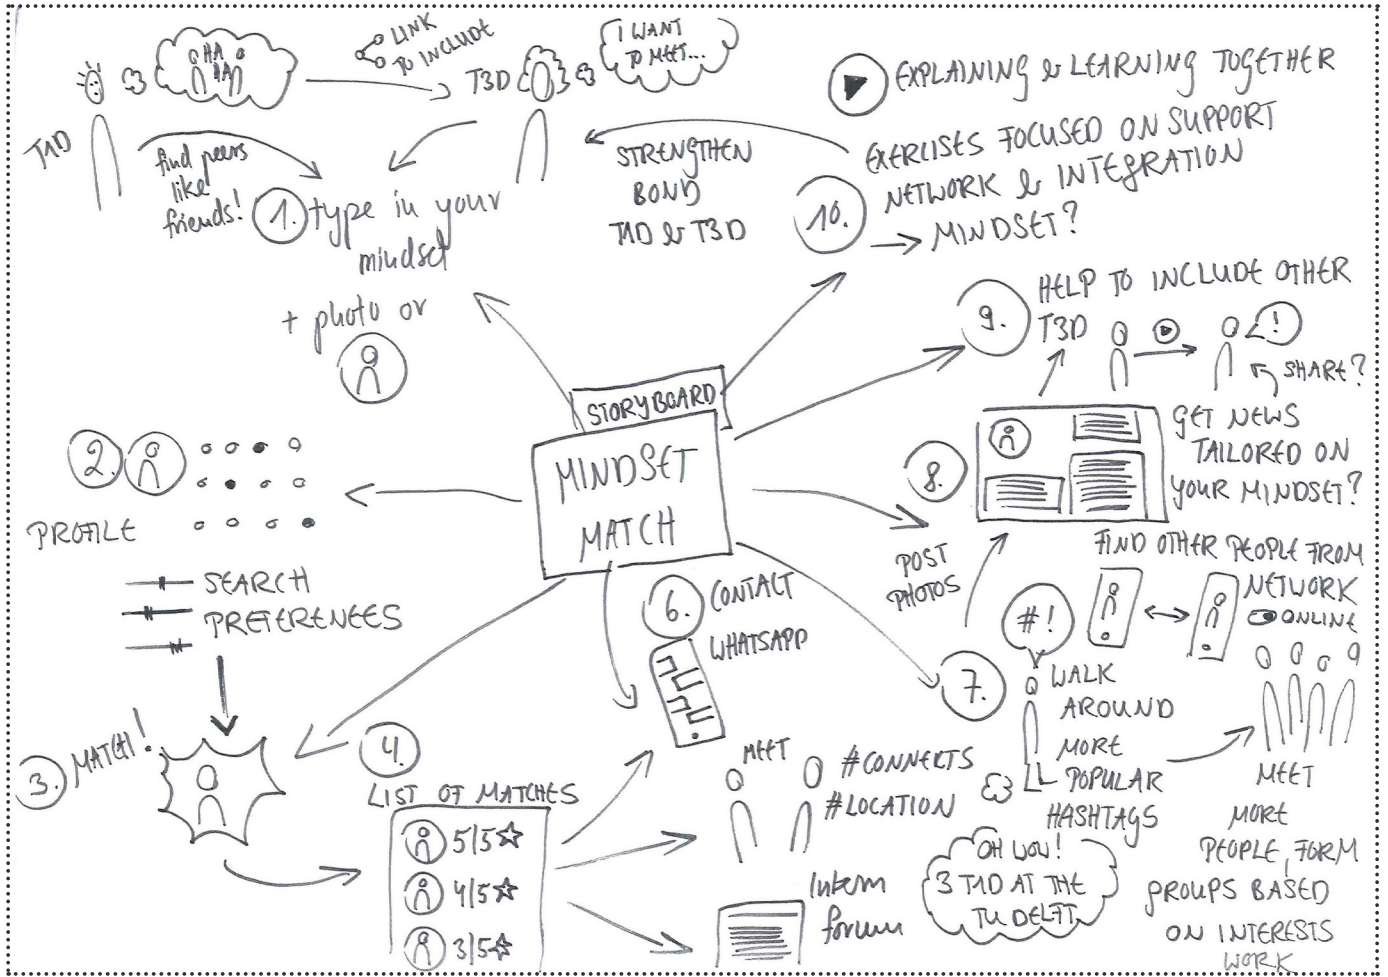 T1D
HA
HA
LINK
TO INCLUDE
T3D
I WANT
TO MEET...
find peers
like
friends!
1. type in your
mindset
+ photo or
STRENGTHEN
BOND
T1D & T3D
EXPLAINING & LEARNING TOGETHER
10. EXERCISES FOCUSED ON SUPPORT
NETWORK & INTEGRATION
→ MINDSET?
9. HELP TO INCLUDE OTHER
T3D
!
SHARE?
STORYBOARD
MINDSET
MATCH
2.
PROFILE
SEARCH
PREFERENCES
3. MATCH!
4.
LIST OF MATCHES
5/5
4/5
3/5
6. CONTACT
WHATSAPP
MEET
#CONNECTS
#LOCATION
Intern
forum
7.
#!
WALK
AROUND
MORE
POPULAR
HASHTAGS
OH WOW!
3 T1D AT THE
TU DELFT
8.
POST
PHOTOS
GET NEWS
TAILORED ON
YOUR MINDSET?
FIND OTHER PEOPLE FROM
NETWORK
ONLINE
MEET
MORE
PEOPLE, FORM
GROUPS BASED
ON INTERESTS
WORK